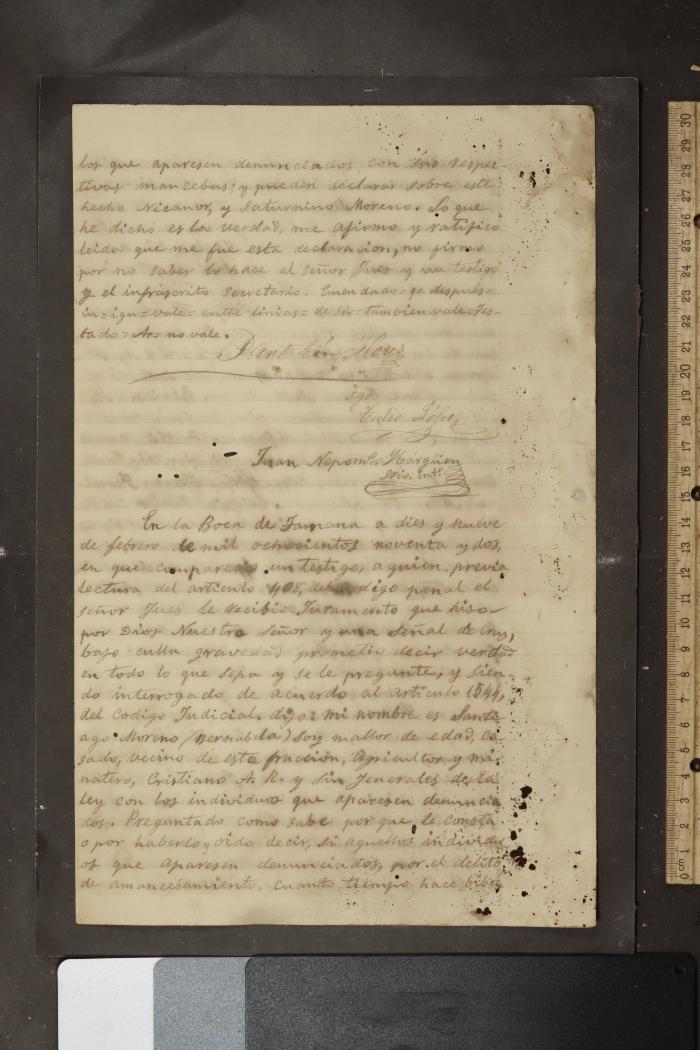 los que aparesen denunciados con sus respec-
tivas mancebas; y pueden declarar sobre este
hecho Nicanor, y Saturnino Moreno. Lo que
he dicho es la verdad, me afirmo y ratifico
leida que me fue esta declaracion, no firmo
por no saber lo hace el señor Jues y un testigo
y el infrascrito Secretario. Enendado= q= después=
in=igu=vale= entre linias= de ser= tambien vale=Tes-
tado= Ar= no vale.
Pantaleón
Tgo
Tulio López
Juan Nepomo. Ibargüen
Srio. Into.
En la Boca de Tamana a dies y nueve
de febrero de mil ochocientos noventa y dos,
en que comparecio un testigo, a quien previa
lectura del articulo 408, del codigo penal el
señor Jues le recibio Juramento que hiso
por Dios Nuestro Señor y una Señal de Crus,
bajo culla gravedad prometio decir verdad
en todo lo que sepa y se le pregunte; y sien-
do interrogado de acuerdo al articulo 1544,
del Codigo Judicial. dijo: mi nombre es Santi
ago Moreno (Bernabela) Soy mallor de edad, ca
sado, vecino de esta fracción, Agricultor y mi-
natero, Cristiano A. R. y sin Jenerales de la
ley con los individuos que aparesen denuncia
dos. Preguntado como sabe por que le consta
o por haberlo oido decir, si aquellos individu
os que aparesen denunciados, por el delito
de amancebamiento, cuanto tiempo hace,